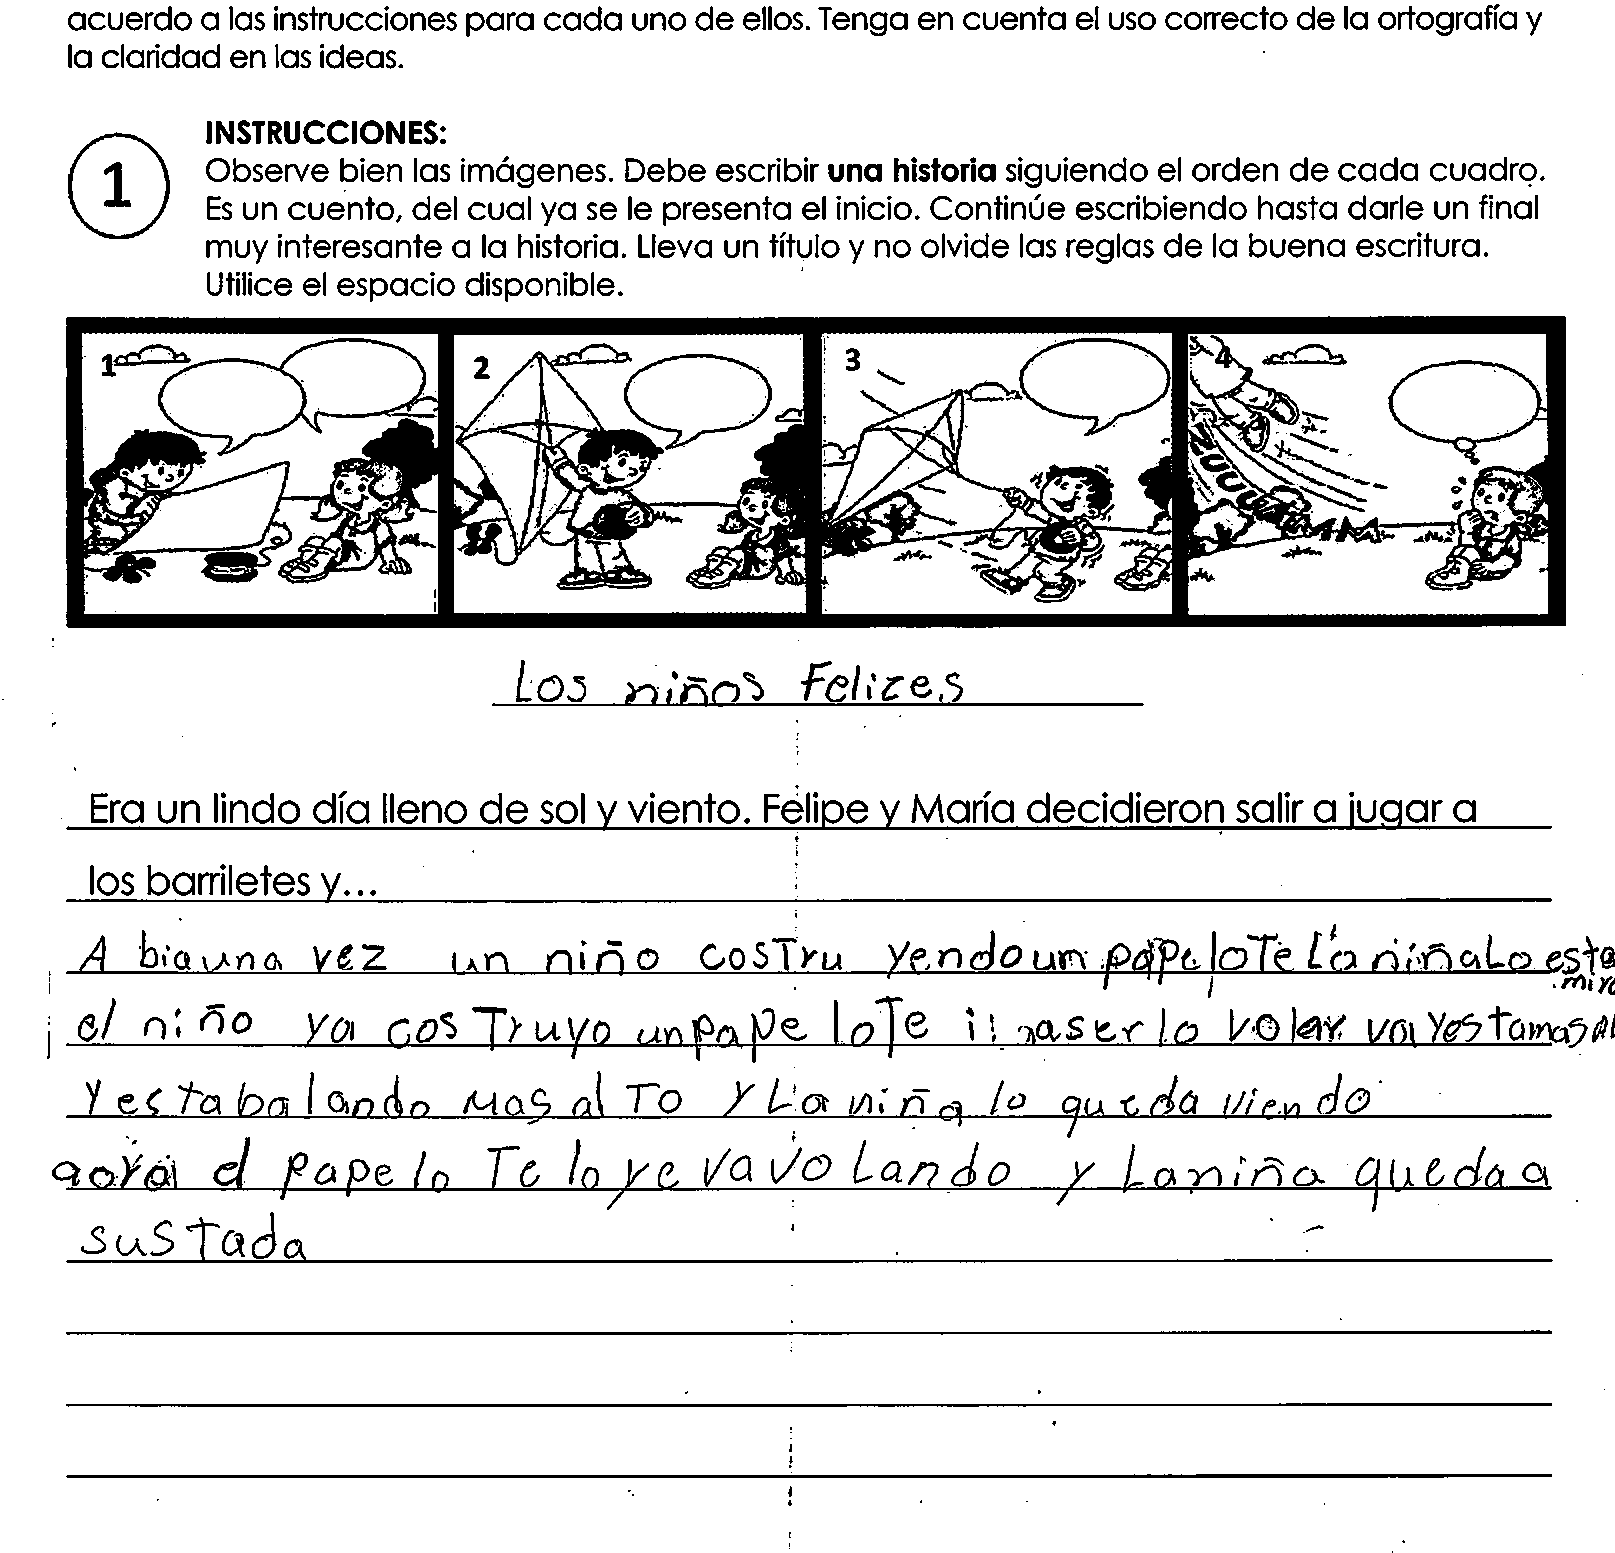 acuerdo a las instrucciones para cada uno de ellos. Tenga en cuenta el uso correcto de la ortografía y
la claridad en las ideas.
1
INSTRUCCIONES:
Observe bien las imágenes. Debe escribir una historia siguiendo el orden de cada cuadro.
Es un cuento, del cual ya se le presenta el inicio. Continúe escribiendo hasta darle un final
muy interesante a la historia. Lleva un título y no olvide las reglas de la buena escritura.
Utilice el espacio disponible.
1 2 3 4
ZUUUUMMM
Los niños Felizes
Era un lindo día lleno de sol y viento. Felipe y María decidieron salir a jugar a
los barriletes y...
A biauna vez un niño costru yendo un papelote La niña Lo esta
mira
el niño ya costruyo un papelote haserlo volar va y esta mas al
y esta balando mas alto y La niña lo queda viendo
aora el papelote lo ye va volando y La niña queda a
sustada